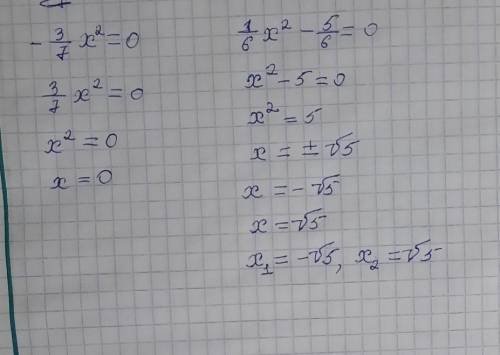 -3/7 x² = 0
3/7 x² = 0
x² = 0
x = 0
1/6 x² - 5/6 = 0
x² - 5 = 0
x² = 5
x = ± √5
x = - √5
x = √5
x₁ = -√5, x₂ = √5